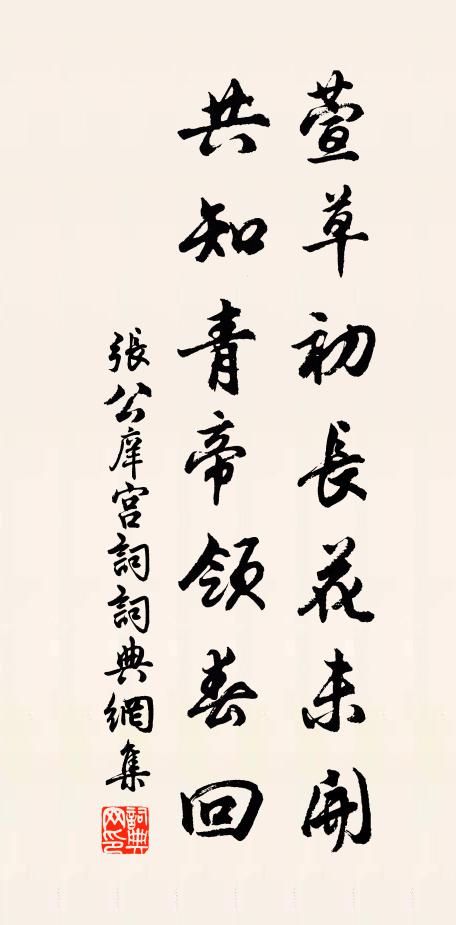 萱草初長花未開
共知青帝領春回
張公庠宮詞詞典網集
詞典網印